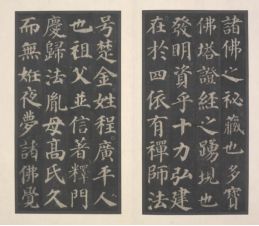 諸佛之秘藏也多寶
佛塔證經之踴現也
發明資乎十力弘建
在於四依有禪師法
号楚金姓程廣平人
也祖父並信著釋門
慶歸法胤母高氏久
而無姙夜夢諸佛覺